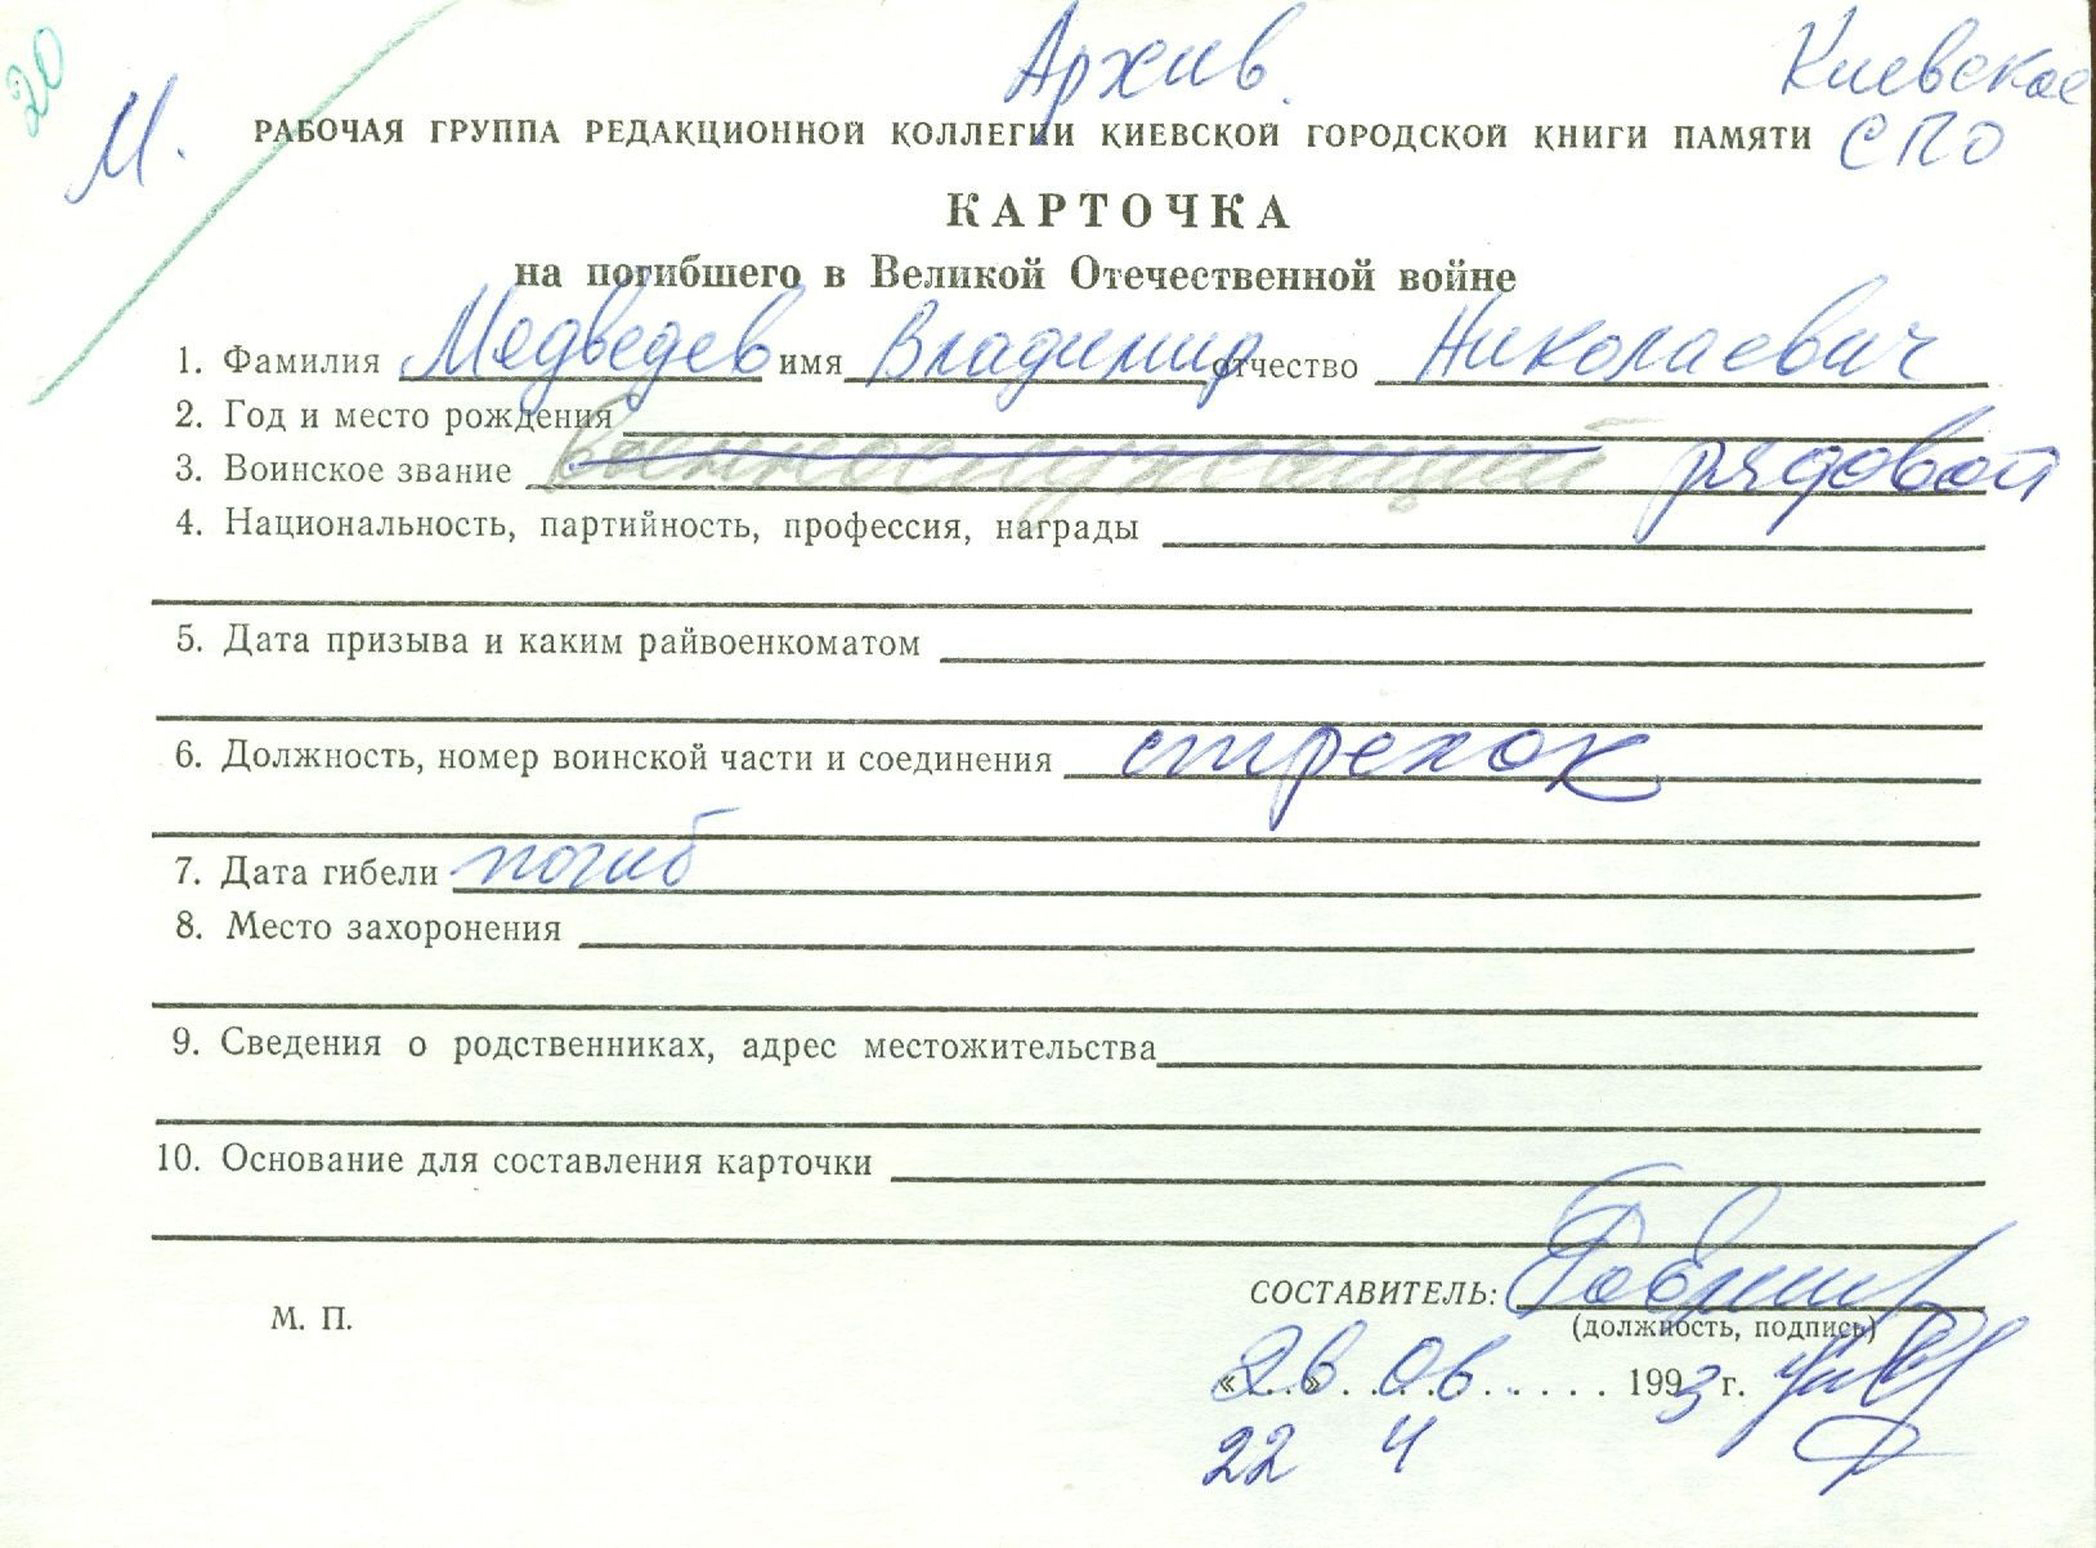 20
Архив.
Киевское
М.
РАБОЧАЯ ГРУППА РЕДАКЦИОННОЙ КОЛЛЕГИИ КИЕВСКОЙ ГОРОДСКОЙ КНИГИ ПАМЯТИ СПО
КАРТОЧКА
на погибшего в Великой Отечественной войне
1. Фамилия Медведев имя Владимир отчество Николаевич
2. Год и место рождения
3. Воинское звание военнослужащий рядовой
4. Национальность, партийность, профессия, награды
5. Дата призыва и каким райвоенкоматом
6. Должность, номер воинской части и соединения стрелок
7. Дата гибели погиб
8. Место захоронения
9. Сведения о родственниках, адрес местожительства
10. Основание для составления карточки
СОСТАВИТЕЛЬ:
М. П.
(должность, подпись)
«26» 06 1993 г.
22 4